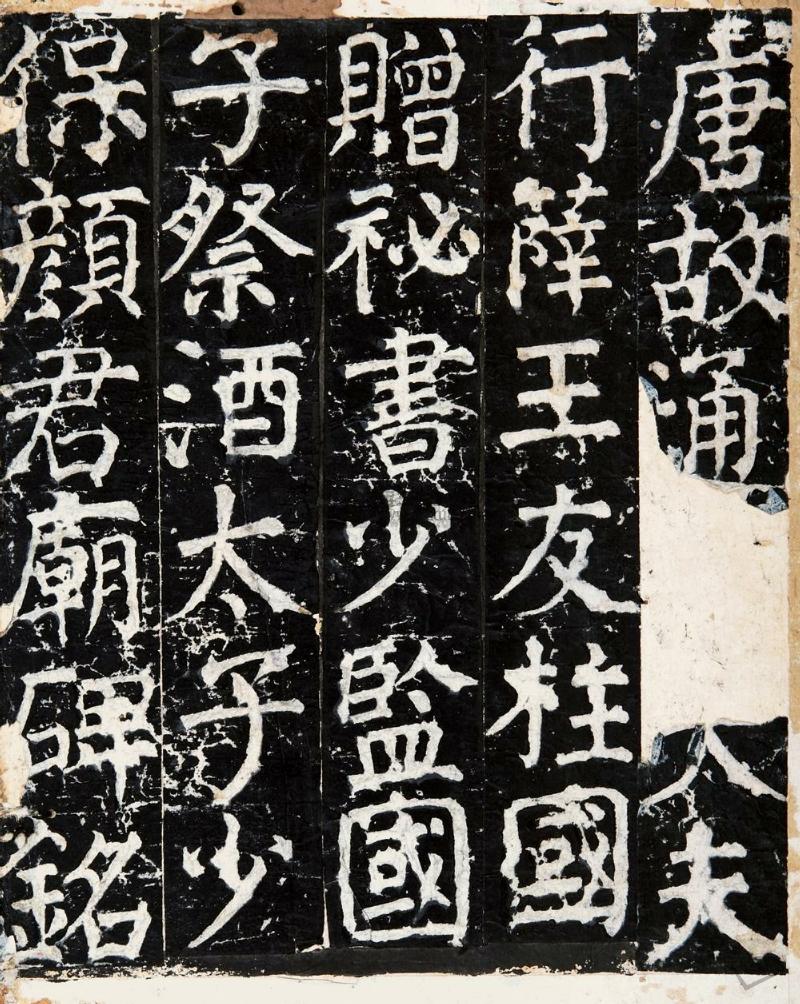 唐故通大夫
行薛王友柱國
贈祕書少監國
子祭酒太子少
保顏君廟碑銘